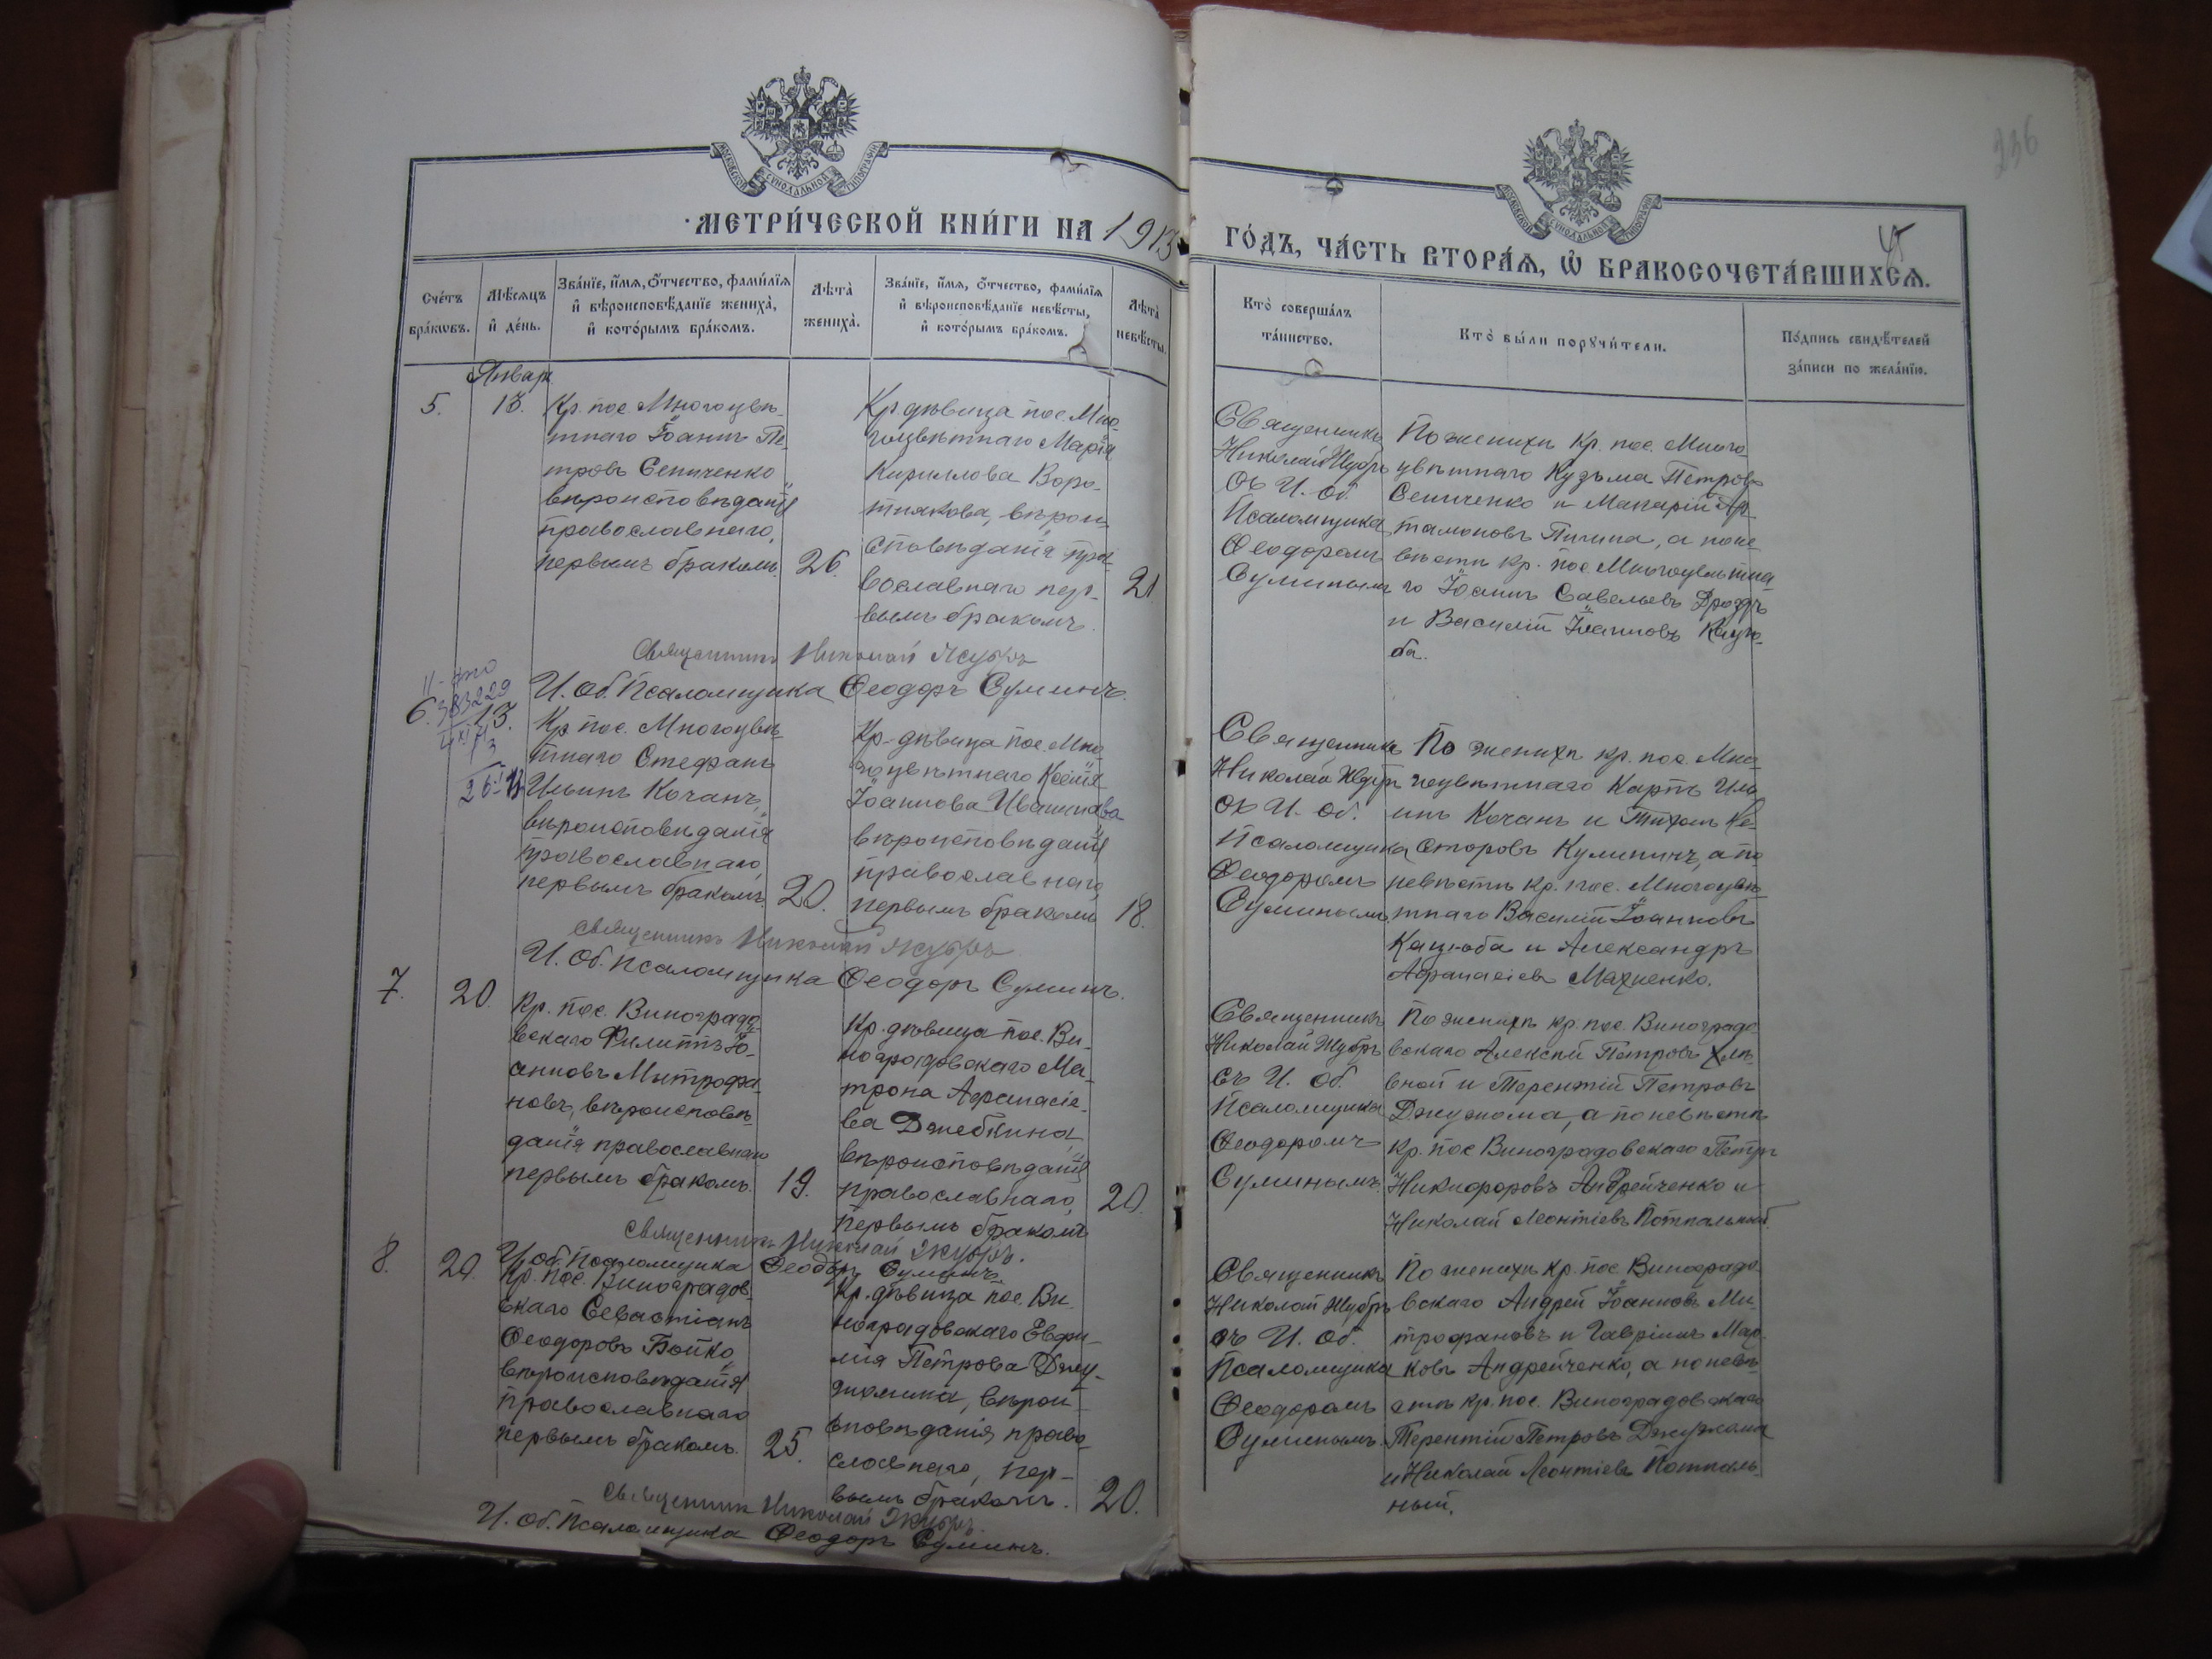 МЕТРИ́ЧЕСКОЙ КНИ́ГИ НА 1913
ГО́ДЪ, ЧА́СТЬ ВТОРА́Я, Ѡ БРАКОСОЧЕТА́ВШИХСЯ.
Сче́тъ бра́кѡвъ.
Мѣ́сяцъ и де́нь.
Зва́нїе, и́мя, о́тчество, фами́лїя
и вѣроисповѣ́данїе жениха̀,
и кото́рымъ бра́комъ.
Лѣта̀ жениха̀.
Зва́нїе, и́мя, о́тчество, фами́лїя
и вѣроисповѣ́данїе невѣ́сты,
и кото́рымъ бра́комъ.
Лѣта̀ невѣ́сты.
Кто̀ соверша́лъ
та́инство.
Кто̀ бы́ли порꙋчи́тели.
По́дпись свидѣ́телей
за́писи по жела́нїю.
Январь
5.
13.
Кр. пос. Многоцвѣ-
тнаго Іоаннъ Пе-
тровъ Сениченко
вѣроисповѣданія
православнаго,
первымъ бракомъ.
26.
Кр. дѣвица пос. Мно-
гоцвѣтнаго Марія
Кириллова Воро-
тнякова, вѣрои-
сповѣданія пра-
вославнаго пер-
вымъ бракомъ.
21
Священникъ
Николай Жубръ
съ И. об.
Псаломщика
Ѳеодоромъ
Суминымъ
По женихѣ Кр. пос. Много-
цвѣтнаго Кузьма Петровъ
Сениченко и Макарій Ар-
тамоновъ Пичина, а по не-
вѣстѣ кр. пос. Многоцвѣтна-
го Іоаннъ Савельевъ Дроздъ
и Василій Іоанновъ Кацю-
ба.
Священникъ Николай Жубръ
И. об. Псаломщика Ѳеодоръ Суминъ.
6.
13.
Кр. пос. Многоцвѣ-
тнаго Стефанъ
Ильинъ Кочанъ,
вѣроисповѣданія
православнаго,
первымъ бракомъ.
20.
Кр. дѣвица пос. Мно-
гоцвѣтнаго Ксенія
Іоаннова
вѣроисповѣданія
православнаго,
первымъ бракомъ
18.
Священникъ
Николай Жубръ
съ И. об.
Псаломщика
Ѳеодоромъ
Суминымъ
По женихѣ кр. пос. Мно-
гоцвѣтнаго Карпъ Иль-
инъ Кочанъ и Тихонъ Не-
сторовъ Кулининъ, а по
невѣстѣ кр. пос. Многоцвѣ-
тнаго Василій Іоанновъ
Кацюба и Александръ
Афанасіевъ Махненко.
Священникъ Николай Жубръ
И. об. псаломщика Ѳеодоръ Суминъ.
7.
20.
Кр. пос. Виноградо-
вскаго Филиппъ Іо-
анновъ Митрофа-
новъ, вѣроисповѣ-
данія православнаго
первымъ бракомъ.
19.
Кр. дѣвица пос. Ви-
ноградовскаго Ма-
трона Афанасіе-
ва Джебкина,
вѣроисповѣданія
православнаго,
первымъ бракомъ
20.
Священникъ
Николай Жубръ
съ И. об.
Псаломщика
Ѳеодоромъ
Суминымъ.
По женихѣ кр. пос. Виноградо-
вскаго Алексѣй Петровъ Хлѣ-
вной и Терентій Петровъ
Джужома, а по невѣстѣ
кр. пос Виноградовскаго Петръ
Никифоровъ Андрейченко и
Николай Леонтіевъ Потпальный.
Священникъ Николай Жубръ.
И. об. Псаломщика Ѳеодоръ Суминъ.
8.
20.
Кр. пос. Виноградов-
скаго Севастіанъ
Ѳеодоровъ Бойко
вѣроисповѣданія
православнаго
первымъ бракомъ.
25.
Кр. дѣвица пос. Ви-
ноградовскаго Евфи-
мія Петрова Джу-
жомина, вѣрои-
сповѣданія, право-
славнаго, пер-
вымъ бракомъ.
20.
Священникъ
Николай Жубръ
съ И. об.
Псаломщика
Ѳеодоромъ
Суминымъ.
По женихѣ кр. пос. Виноградо-
вскаго Андрей Іоанновъ Ми-
трофановъ и Гавріилъ Мар-
ковъ Андрейченко, а по невѣ-
стѣ кр. пос. Виноградовскаго
Терентій Петровъ Джужома
и Николай Леонтіевъ Потпаль-
ный.
Священникъ Николай Жубръ.
И. об. Псаломщика Ѳеодоръ Суминъ.